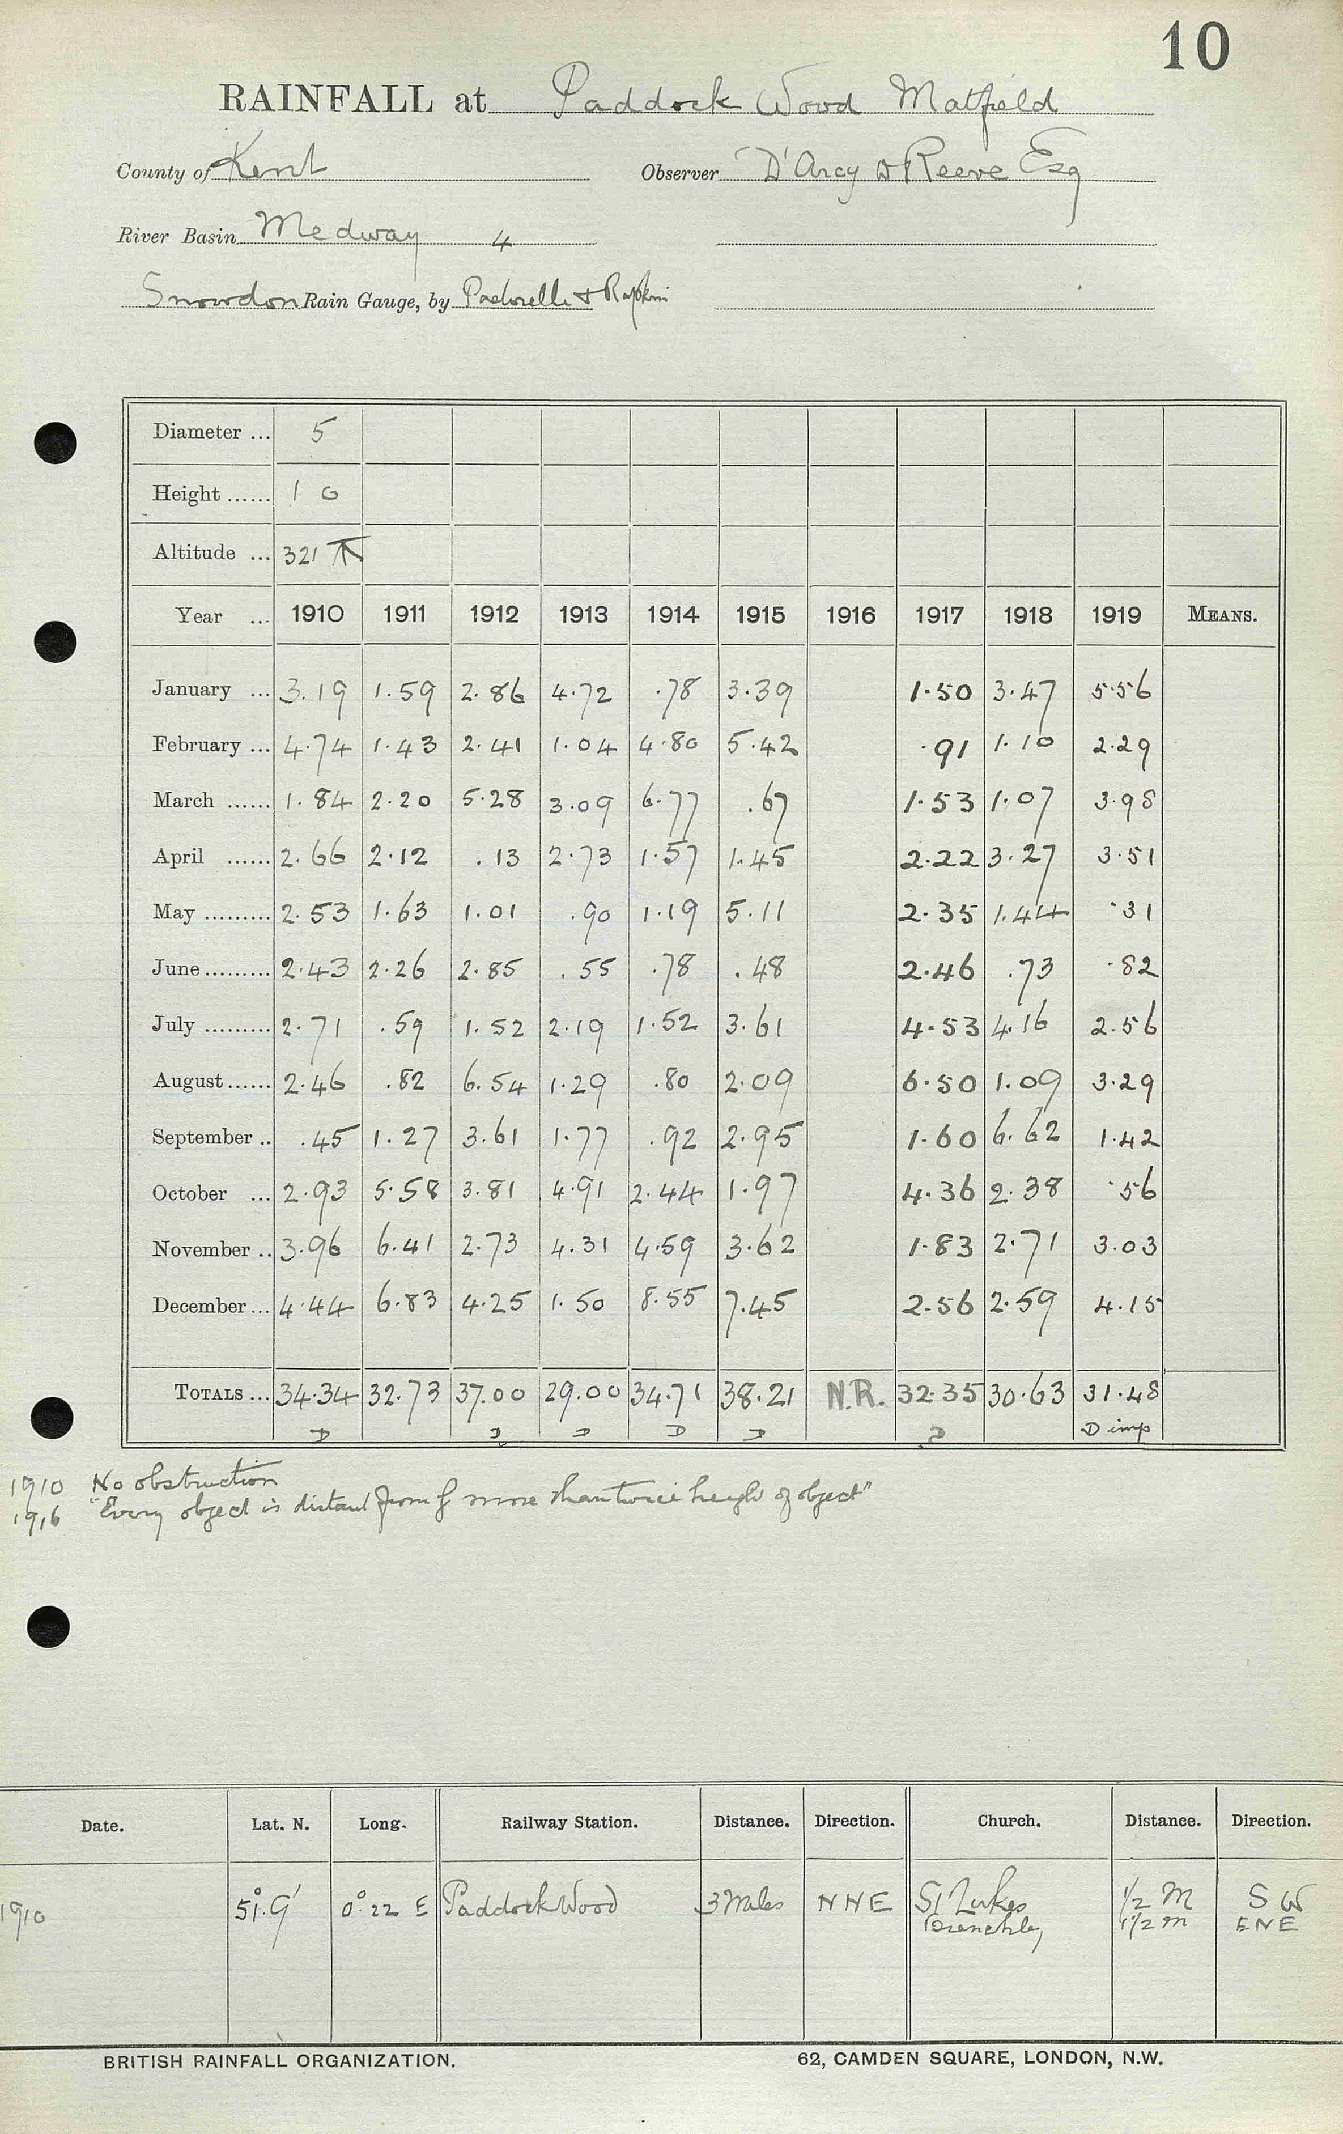 10
RAINFALL at Paddock Wood Matfield
County of Kent Observer D'Arcy Reeve Esq
River Basin Medway 4
Snowdon Rain Gauge, by
Diameter ... 5
Height ...... 1 0
Altitude ... 321
Year ... 1910 1911 1912 1913 1914 1915 1916 1917 1918 1919 MEANS.
January ... 3.19 1.59 2.86 4.72 .78 3.39 1.50 3.47 5.56
February ... 4.74 1.43 2.41 1.04 4.80 5.42 .91 1.10 2.29
March ...... 1.84 2.20 5.28 3.09 6.77 .67 1.53 1.07 3.98
April ...... 2.66 2.12 .13 2.73 1.57 1.45 2.22 3.27 3.51
May ......... 2.53 1.63 1.01 .90 1.19 5.11 2.35 1.44 .31
June ......... 2.43 2.26 2.85 .55 .78 .48 2.46 .73 .82
July ......... 2.71 .59 1.52 2.19 1.52 3.61 4.53 4.16 2.56
August ...... 2.46 .82 6.54 1.29 .80 2.09 6.50 1.09 3.29
September .. .45 1.27 3.61 1.77 .92 2.95 1.60 6.62 1.42
October ... 2.93 5.58 3.81 4.91 2.44 1.97 4.36 2.38 .56
November .. 3.96 6.41 2.73 4.31 4.59 3.62 1.83 2.71 3.03
December ... 4.44 6.83 4.25 1.50 8.55 7.45 2.56 2.59 4.15
TOTALS ... 34.34 32.73 37.00 29.00 34.71 38.21 N.R. 32.35 30.63 31.48
D D D D D D D imp
1910 No obstruction
1916 "Every object is distant from g more than twice height of object"
Date. Lat. N. Long. Railway Station. Distance. Direction. Church. Distance. Direction.
1910 51°.9' 0°.22 E Paddock Wood 3 Miles NNE St Lukes 1/2 M SW
Brenchley 1 1/2 m ENE
BRITISH RAINFALL ORGANIZATION. 62, CAMDEN SQUARE, LONDON, N.W.